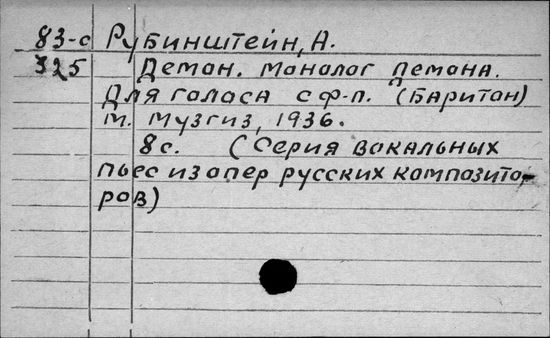 83-с Рубинштейн, А.
325 Демон. Монолог Демона.
Для голоса с ф-п. (Баритон)
М. Музгиз, 1936.
8с. (Серия вокальных
пьес из опер русских компози­то-
ров)